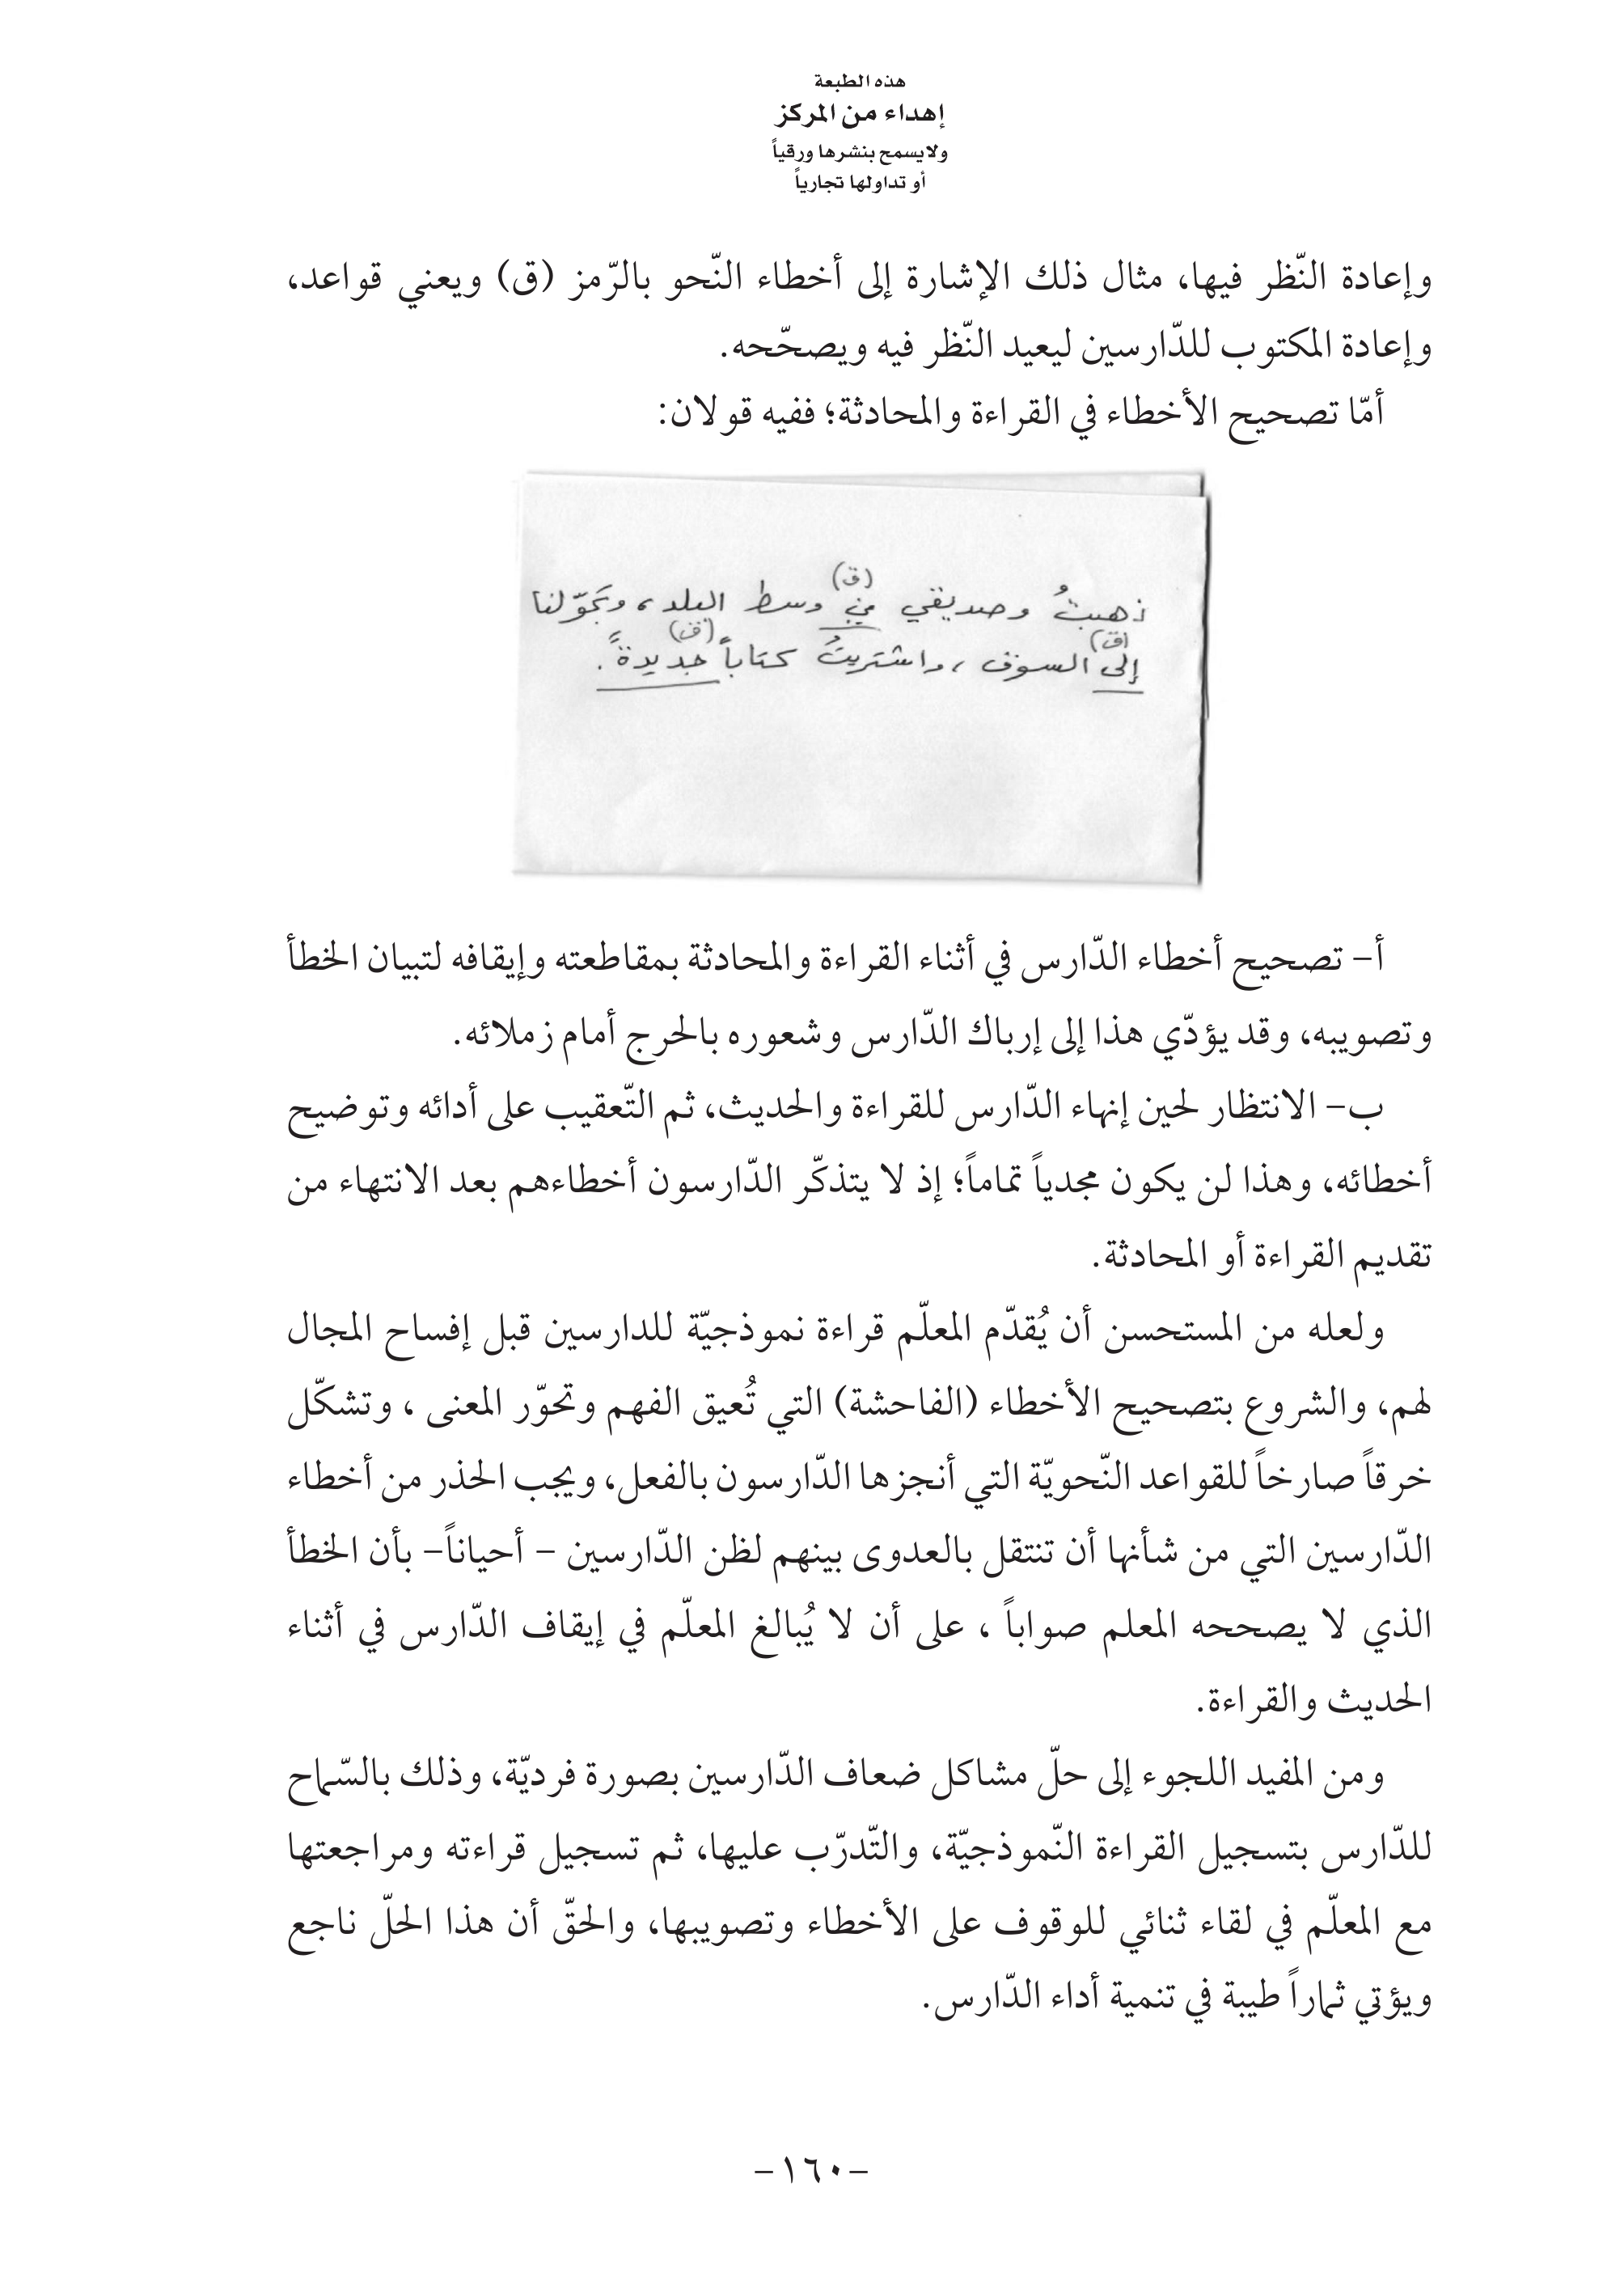 هذه الطبعة
إهداء من المركز
ولايسمح بنشرها ورقياً
أو تداولها تجارياً
وإعادة النّظر فيها، مثال ذلك الإشارة إلى أخطاء النّحو بالرّمز (ق) ويعني قواعد،
وإعادة المكتوب للدّارسين ليعيد النّظر فيه ويصحّحه.
أمّا تصحيح الأخطاء في القراءة والمحادثة؛ ففيه قولان:
(ق)
ذهبتُ وصديقي في وسط البلد، وتجوّلنا
(ق) (ق)
إلى السوق، واشتريتُ كتاباً جديدةً.
أ- تصحيح أخطاء الدّارس في أثناء القراءة والمحادثة بمقاطعته وإيقافه لتبيان الخطأ
وتصويبه، وقد يؤدّي هذا إلى إرباك الدّارس وشعوره بالحرج أمام زملائه.
ب- الانتظار لحين إنهاء الدّارس للقراءة والحديث، ثم التّعقيب على أدائه وتوضيح
أخطائه، وهذا لن يكون مجدياً تماماً؛ إذ لا يتذكّر الدّارسون أخطاءهم بعد الانتهاء من
تقديم القراءة أو المحادثة.
ولعله من المستحسن أن يُقدّم المعلّم قراءة نموذجيّة للدارسين قبل إفساح المجال
لهم، والشروع بتصحيح الأخطاء (الفاحشة) التي تُعيق الفهم وتحوّر المعنى ، وتشكّل
خرقاً صارخاً للقواعد النّحويّة التي أنجزها الدّارسون بالفعل، ويجب الحذر من أخطاء
الدّارسين التي من شأنها أن تنتقل بالعدوى بينهم لظن الدّارسين – أحياناً– بأن الخطأ
الذي لا يصححه المعلم صواباً ، على أن لا يُبالغ المعلّم في إيقاف الدّارس في أثناء
الحديث والقراءة.
ومن المفيد اللجوء إلى حلّ مشاكل ضعاف الدّارسين بصورة فرديّة، وذلك بالسّماح
للدّارس بتسجيل القراءة النّموذجيّة، والتّدرّب عليها، ثم تسجيل قراءته ومراجعتها
مع المعلّم في لقاء ثنائي للوقوف على الأخطاء وتصويبها، والحقّ أن هذا الحلّ ناجع
ويؤتي ثماراً طيبة في تنمية أداء الدّارس.
-١٦٠-